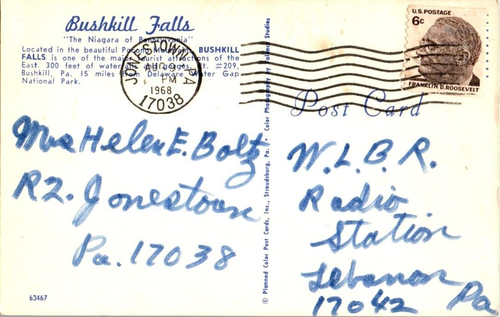 Bushkill Falls
"The Niagara of Pennsylvania"
Located in the beautiful Pocono Mountains, BUSHKILL
FALLS is one of the major tourist attractions of the
East. 300 feet of water #209,
Bushkill, Pa. 15 miles from Delaware Water Gap
National Park.
JONESTOWN, PA
AUG 9
PM
1968
17038
U.S. POSTAGE
6c
FRANKLIN D. ROOSEVELT
Post Card
Mrs Helen E. Boltz
R2. Jonestown
Pa. 17038
W.L.B.R.
Radio
Station
Lebanon Pa
17042
© Planned Color Post Cards, Inc., Stroudsburg, Pa. Color Photography by Talmad Studios
63467